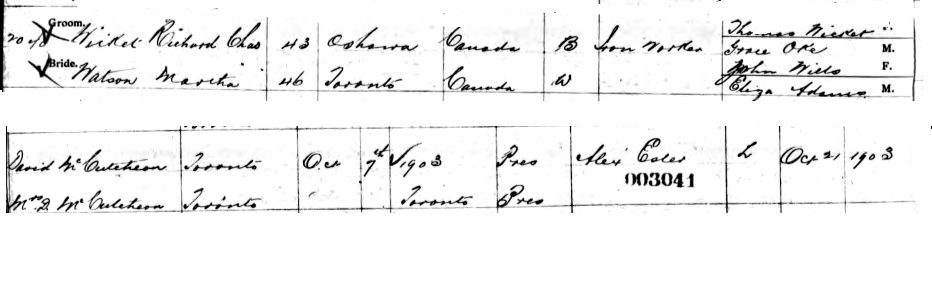 Groom.
Wicket Richard Chas 43 Oshawa Canada B Iron Worker Thomas Wicket
Grace Oke M.
Bride.
Watson Martha 46 Toronto Canada W John Wills F.
Eliza Adams M.
David McCutcheon Toronto Oct 7th 1903 Pres Alex Esler L Oct 21 1903
003041
Mrs D. McCutcheon Toronto Toronto Pres